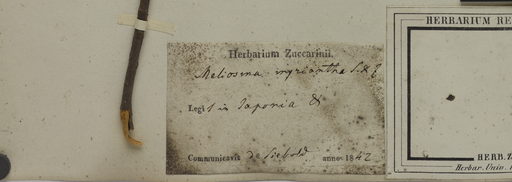 Herbarium Zuccarinii.
Meliosma myriantha S. & Z
Legit in Japonia
Communicavit de Siebold anno 1842
HERBARIUM RE
HERB. Z
Herbar. Univ.